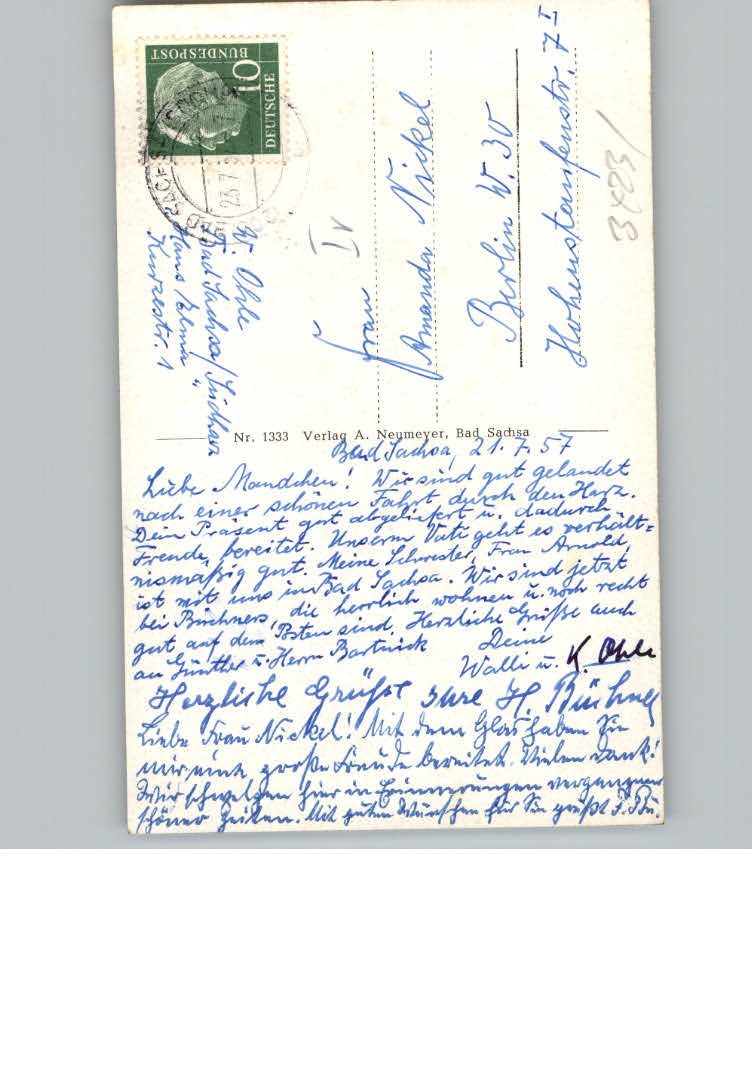 DEUTSCHE
BUNDESPOST
10
BAD SACHSA
23.7.
W. Ohle
Bad Sachsa/Südharz
Haus Elma
Kurzestr. 1
IV
Frau
Amanda Nickel
Berlin W. 30
Hohenstaufenstr. 7 I
Nr. 1333 Verlag A. Neumeyer, Bad Sachsa
Bad Sachsa, 21.7.57
Liebe Mandchen! Wir sind gut gelandet
nach einer schönen Fahrt durch den Harz.
Dein Präsent gut abgeliefert u. dadurch
Freude bereitet. Unserm Vati geht es verhält=
nismäßig gut. Meine Schwester, Frau Arnold,
ist mit uns in Bad Sachsa. Wir sind jetzt
bei Büchners, die herrlich wohnen u. noch recht
gut auf dem Posten sind. Herzliche Grüße auch
an Günther u. Herrn Bartnick Deine
Walli u. K. Ohle
Herzliche Grüße Ihre H. Büchner
Liebe Frau Nickel! Mit dem Glas haben Sie
mir eine große Freude bereitet. Vielen Dank!
Wir schwelgen hier in Erinnerungen vergangener
schöner Zeiten. Mit guten Wünschen für Sie grüßt F. Bü.